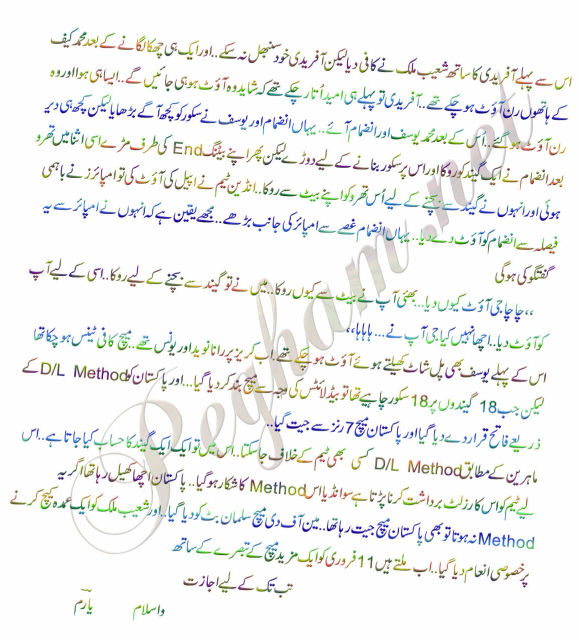 اس سے پہلے آفریدی کا ساتھ شعیب ملک نے کافی دیا لیکن آفریدی خود سنبھل نہ سکے.. اور ایک ہی چھکا لگانے کے بعد محمد کیف
کے ہاتھوں رن آؤٹ ہو چکے تھے.. آفریدی تو پہلے ہی امید اُتار چکے تھے کہ شاید وہ آؤٹ ہو ہی جائیں گے.. ایسا ہی ہوا اور وہ
رن آؤٹ ہو گئے.. اُس کے بعد محمد یوسف اور انضمام آئے.. یہاں انضمام اور یوسف نے سکور کو کچھ آگے بڑھایا لیکن کچھ ہی دیر
بعد انضمام نے ایک گیند کو روکا اور اس پر سکور بنانے کے لیے دوڑے لیکن پھر اپنے بیٹنگ End کی طرف مڑے اسی اثنا میں تھرو
ہوئی اور انہوں نے گیند سے بچنے کے لیے اُس تھرو کو اپنے بیٹ سے روکا.. انڈین ٹیم نے اپیل کی آؤٹ کی تو امپائرز نے باہمی
فیصلہ سے انضمام کو آؤٹ دے دیا.. یہاں انضمام غصے سے امپائر کی جانب بڑھے.. مجھے یقین ہے کہ انہوں نے امپائر سے یہ
گفتگو کی ہوگی
،،چاچا جی آؤٹ کیوں دیا... بھئی آپ نے بیٹ سے کیوں روکا.. میں نے تو گیند سے بچنے کے لیے روکا.. اسی کے لیے آپ
کو آؤٹ دیا.. اچھا نہیں کیا جی آپ نے.... ہاہاہا،،
اس کے پہلے یوسف بھی پل شاٹ کھیلتے ہوئے آؤٹ ہو چکے تھے اب کریز پر رانا نوید اور یونس تھے.. میچ کافی ٹینس ہو چکا تھا
لیکن جب 18 گیندوں پر 18 سکور چاہیے تھا تو بیڈ لائٹس کی وجہ سے میچ بند کر دیا گیا... اور پاکستان کو D/L Method کے
ذریعے فاتح قرار دے دیا گیا اور پاکستان میچ 7 رنز سے جیت گیا..
ماہرین کے مطابق D/L Method کسی بھی ٹیم کے خلاف جا سکتا.. اس میں تو ایک ایک گیند کا حساب کیا جاتا ہے.. اس
لیے ٹیم کو اس کا رزلٹ برداشت کرنا پڑتا ہے سو انڈیا اس Method کا شکار ہو گیا.. پاکستان اچھا کھیل رہا تھا اگر یہ
Method نہ ہوتا تو بھی پاکستان میچ جیت رہا تھا.. مین آف دی میچ سلمان بٹ کو دیا گیا.. اور شعیب ملک کو ایک عمدہ کیچ کرنے
پر خصوصی انعام دیا گیا.. اب ملتے ہیں 11 فروری کو ایک مزید میچ کے تبصرے کے ساتھ
تب تک کے لیے اجازت
واسلام یارم
Pegham.net